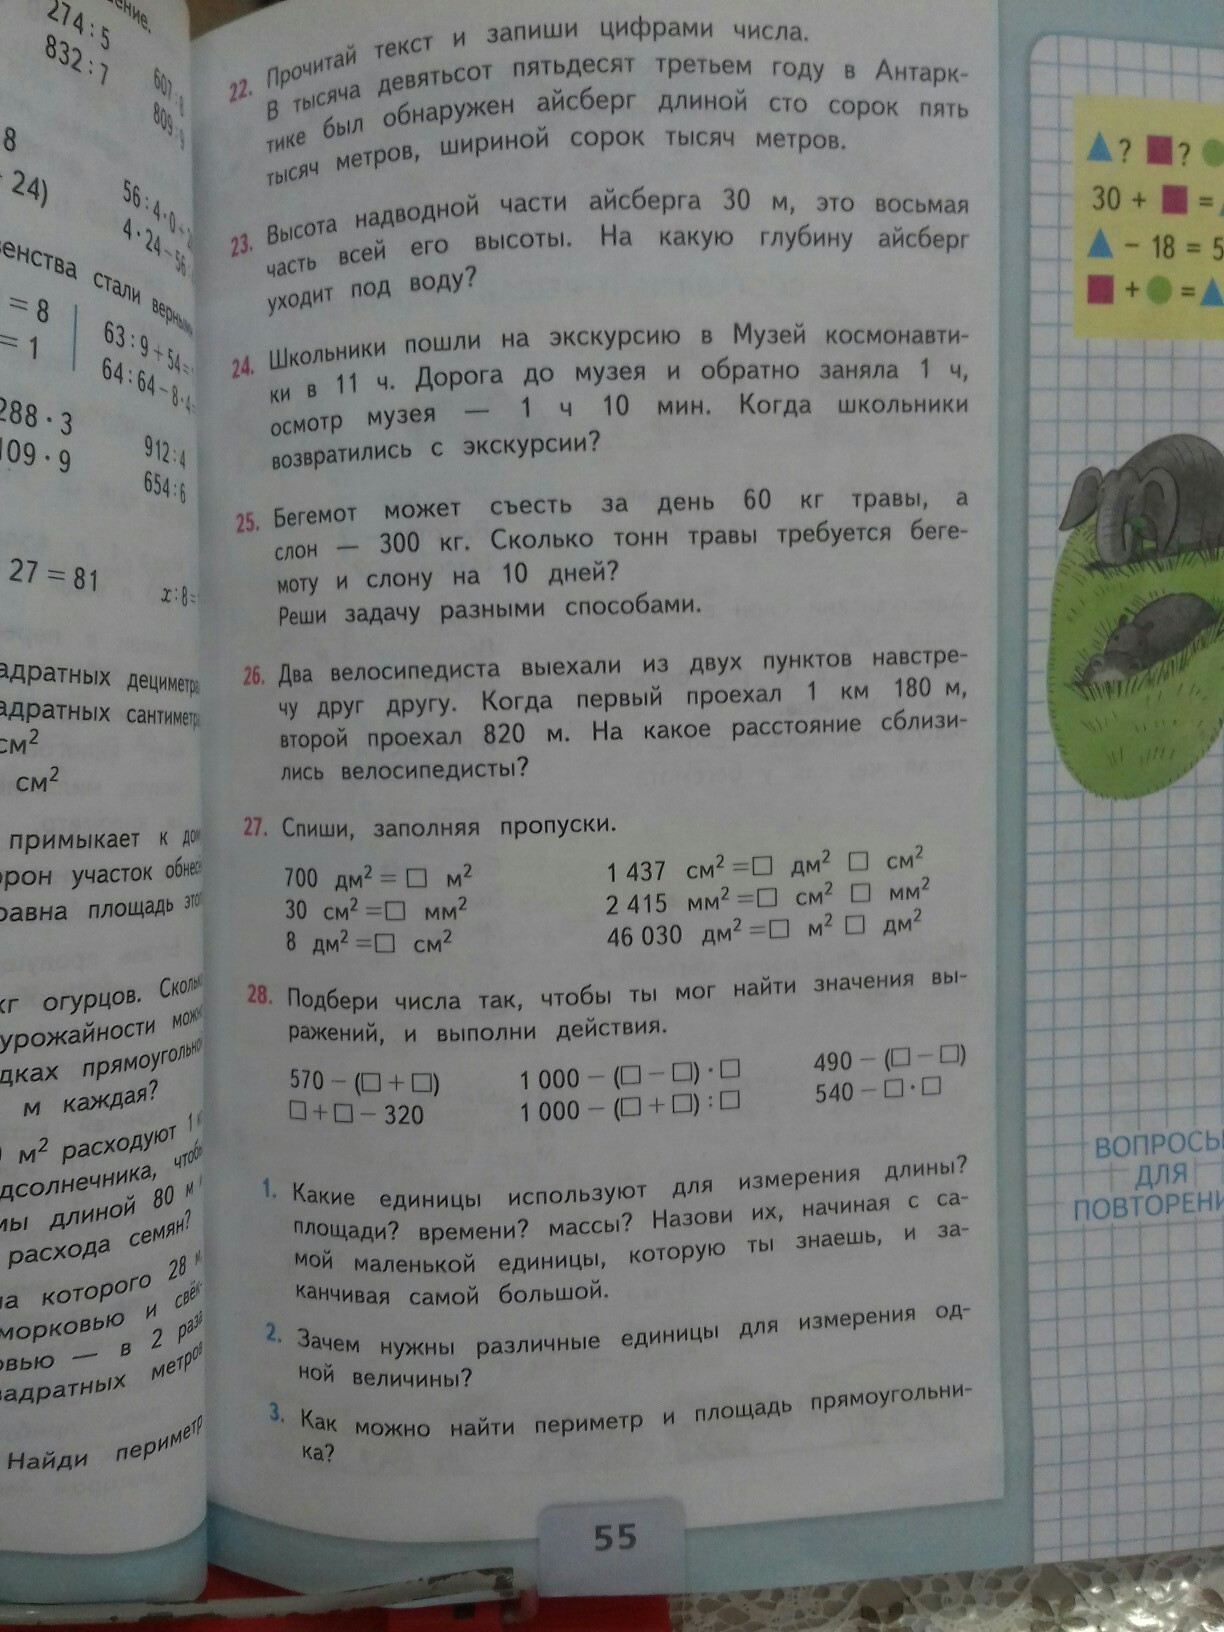 274 : 5
832 : 7
607 : 8
809 : 9
8
24)
56 : 4 · 0 +
4 · 24 – 56 :
венства стали верными
= 8
= 1
63 : 9 + 54 =
64 : 64 – 8 · 4
288 · 3
109 · 9
912 : 4
654 : 6
27 = 81
x : 8 =
адратных дециметра
адратных сантиметра
см²
см²
примыкает к дом
орон участок обнесе
равна площадь этог
кг огурцов. Скольк
урожайности можно
дках прямоугольно
м каждая?
м² расходуют 1 к
дсолнечника, чтобы
мы длиной 80 м
расхода семян?
на которого 28 м
морковью и свёк-
овью — в 2 раза
вадратных метров
Найди периметр
22. Прочитай текст и запиши цифрами числа.
В тысяча девятьсот пятьдесят третьем году в Антарк-
тике был обнаружен айсберг длиной сто сорок пять
тысяч метров, шириной сорок тысяч метров.
23. Высота надводной части айсберга 30 м, это восьмая
часть всей его высоты. На какую глубину айсберг
уходит под воду?
24. Школьники пошли на экскурсию в Музей космонавти-
ки в 11 ч. Дорога до музея и обратно заняла 1 ч,
осмотр музея — 1 ч 10 мин. Когда школьники
возвратились с экскурсии?
25. Бегемот может съесть за день 60 кг травы, а
слон — 300 кг. Сколько тонн травы требуется беге-
моту и слону на 10 дней?
Реши задачу разными способами.
26. Два велосипедиста выехали из двух пунктов навстре-
чу друг другу. Когда первый проехал 1 км 180 м,
второй проехал 820 м. На какое расстояние сблизи-
лись велосипедисты?
27. Спиши, заполняя пропуски.
700 дм² = □ м² 1 437 см² = □ дм² □ см²
30 см² = □ мм² 2 415 мм² = □ см² □ мм²
8 дм² = □ см² 46 030 дм² = □ м² □ дм²
28. Подбери числа так, чтобы ты мог найти значения вы-
ражений, и выполни действия.
570 – (□ + □) 1 000 – (□ – □) · □ 490 – (□ – □)
□ + □ – 320 1 000 – (□ + □) : □ 540 – □ · □
1. Какие единицы используют для измерения длины?
площади? времени? массы? Назови их, начиная с са-
мой маленькой единицы, которую ты знаешь, и за-
канчивая самой большой.
2. Зачем нужны различные единицы для измерения од-
ной величины?
3. Как можно найти периметр и площадь прямоугольни-
ка?
55
▲? ■? ●
30 + ■ = ▲
▲ – 18 = 5
■ + ● = ▲
ВОПРОСЫ
ДЛЯ
ПОВТОРЕНИ